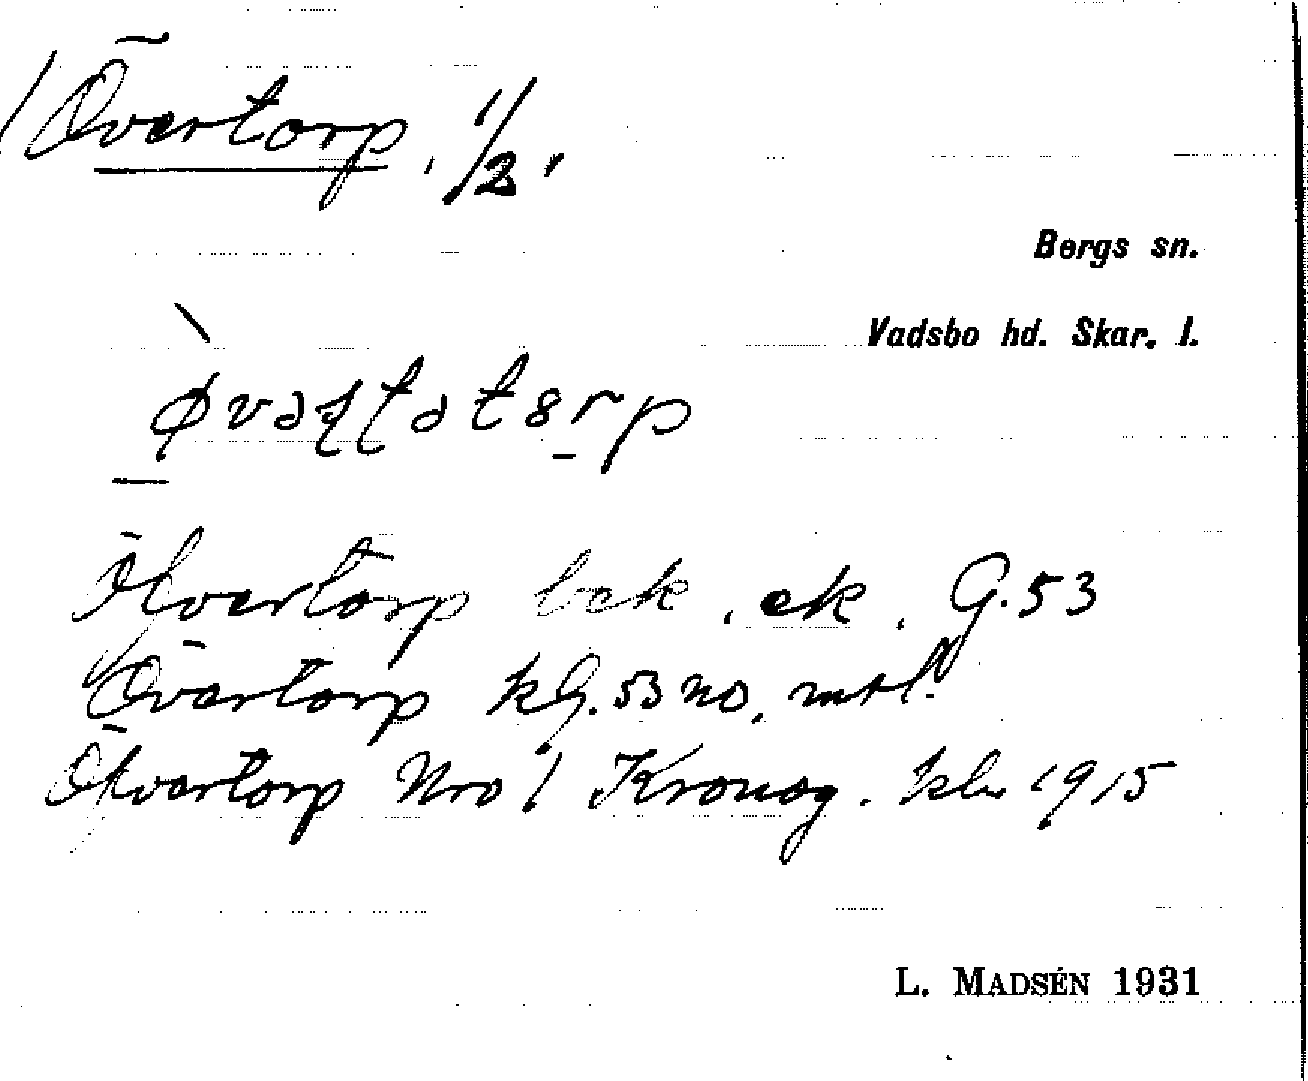 Övertorp, 1/2,
Bergs sn.
Vadsbo hd. Skar. l.
Öfvertorp bek. ek. G.53
Övertorp kG.53 no, mtl.
Öfvertorp Nro 1 Kronog. kln 1915
L. MADSÉN 1931